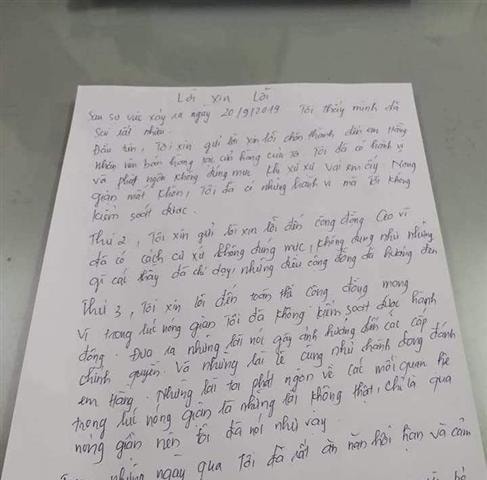 Lời xin Lỗi
Sau sự việc xảy ra ngày 20/9/2019 Tôi thấy mình đã
Sai rất nhiều.
Đầu tiên, Tôi xin gửi lời xin lỗi chân thành đến em Hằng
Nhân viên bán hàng tại cửa hàng của tôi. Tôi đã có hành vi
và phát ngôn không đúng mực khi xử xự với em ấy. Nóng
giận mất khôn, Tôi đã có những hành vi mà tôi không
kiểm soát được.
Thứ 2, Tôi xin gửi lời xin lỗi đến cộng đồng Ceo vì
đã có cách cư xử không đúng mực, không đúng như những
gì các thầy đã chỉ dạy, những điều cộng đồng đã hướng đến
Thứ 3, Tôi xin lỗi đến toàn thể Cộng đồng mạng
vì trong lúc nóng giận Tôi đã không kiểm soát được hành
động. Đưa ra những lời nói gây ảnh hưởng đến các cấp
chính quyền. Và những lời lẽ cũng như hành động đánh
em Hằng. Những lời tôi phát ngôn về các mối quan hệ
trong lúc nóng giận là những lời không thật, chỉ là quá
nóng giận nên tôi đã nói như vậy.
những ngày qua Tôi đã rất ăn năn hối hận và cảm